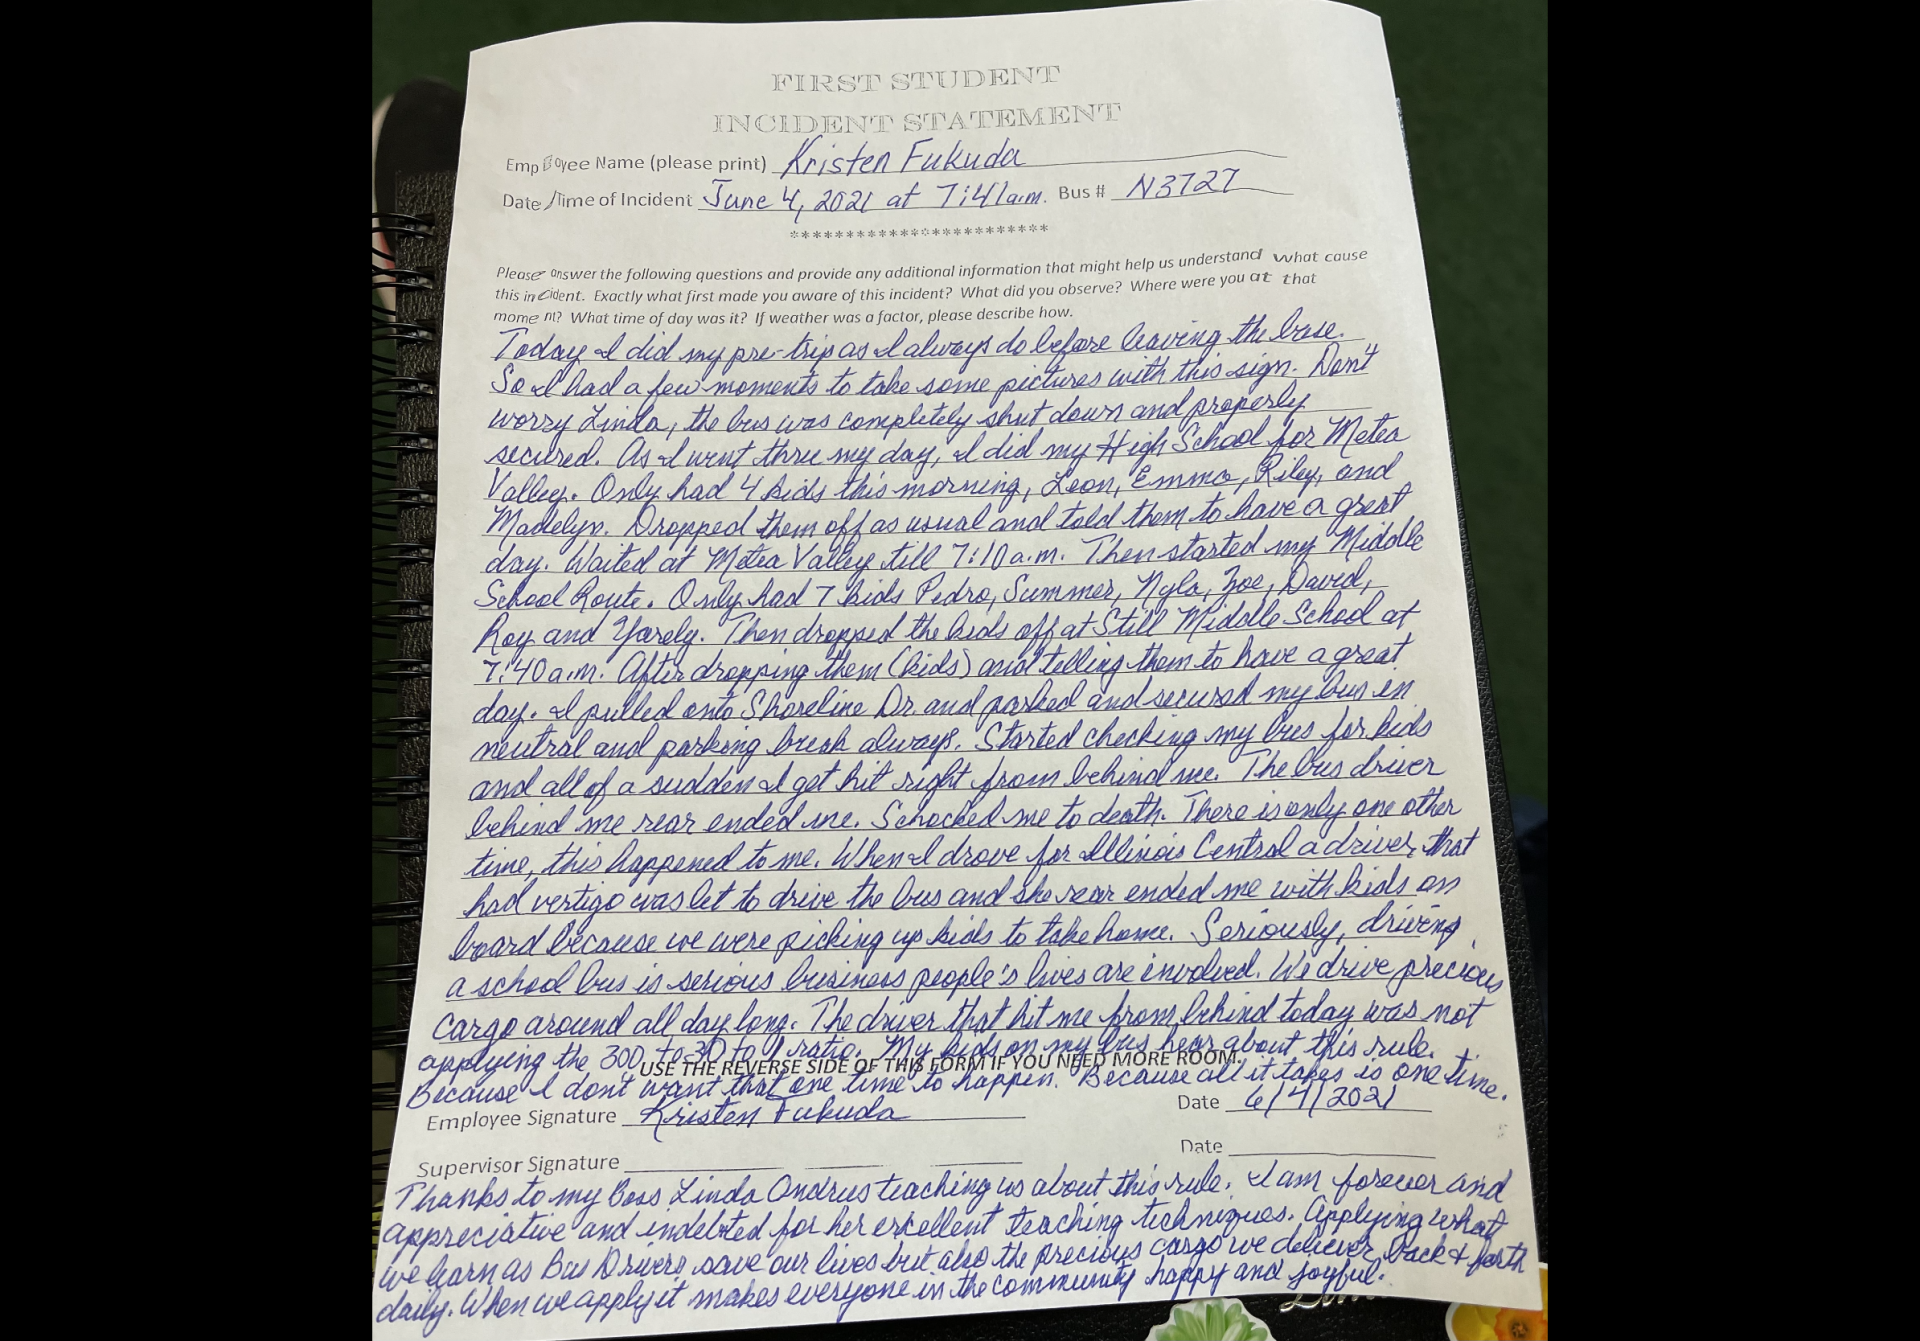 FIRST STUDENT
INCIDENT STATEMENT
Employee Name (please print) Kristen Fukuda
Date/Time of Incident June 4, 2021 at 7:41a.m. Bus # N3727
***********************
Please answer the following questions and provide any additional information that might help us understand what cause
this incident. Exactly what first made you aware of this incident? What did you observe? Where were you at that
moment? What time of day was it? If weather was a factor, please describe how.
Today I did my pre-trip as I always do before leaving the base.
So I had a few moments to take some pictures with this sign. Don't
worry Linda, the bus was completely shut down and properly
secured. As I went thru my day, I did my High School for Metea
Valley. Only had 4 kids this morning, Leon, Emma, Riley, and
Madelyn. Dropped them off as usual and told them to have a great
day. Waited at Metea Valley till 7:10 a.m. Then started my Middle
School Route. Only had 7 kids Pedro, Summer, Nyla, Zoe, David,
Roy and Yarely. Then dropped the kids off at Still Middle School at
7:40 a.m. After dropping them (kids) and telling them to have a great
day. I pulled onto Shoreline Dr. and parked and secured my bus in
neutral and parking break always. Started checking my bus for kids
and all of a sudden I get hit right from behind me. The bus driver
behind me rear ended me. Schocked me to death. There is only one other
time, this happened to me. When I drove for Illinois Central a driver that
had vertigo was let to drive the bus and she rear ended me with kids on
board because we were picking up kids to take home. Seriously, driving
a school bus is serious business people's lives are involved. We drive precious
cargo around all day long. The driver that hit me from behind today was not
applying the 300 to 30 to 1 ratio. My kids on my bus hear about this rule.
USE THE REVERSE SIDE OF THIS FORM IF YOU NEED MORE ROOM.
Because I don't want that one time to happen. Because all it takes is one time.
Employee Signature Kristen Fukuda Date 6/4/2021
Supervisor Signature Date
Thanks to my Boss Linda Ondrus teaching us about this rule. I am forever and
appreciative and indebted for her excellent teaching techniques. Applying what
we learn as Bus Drivers save our lives but also the precious cargo we deliever back & forth
daily. When we apply it makes everyone in the community happy and joyful.